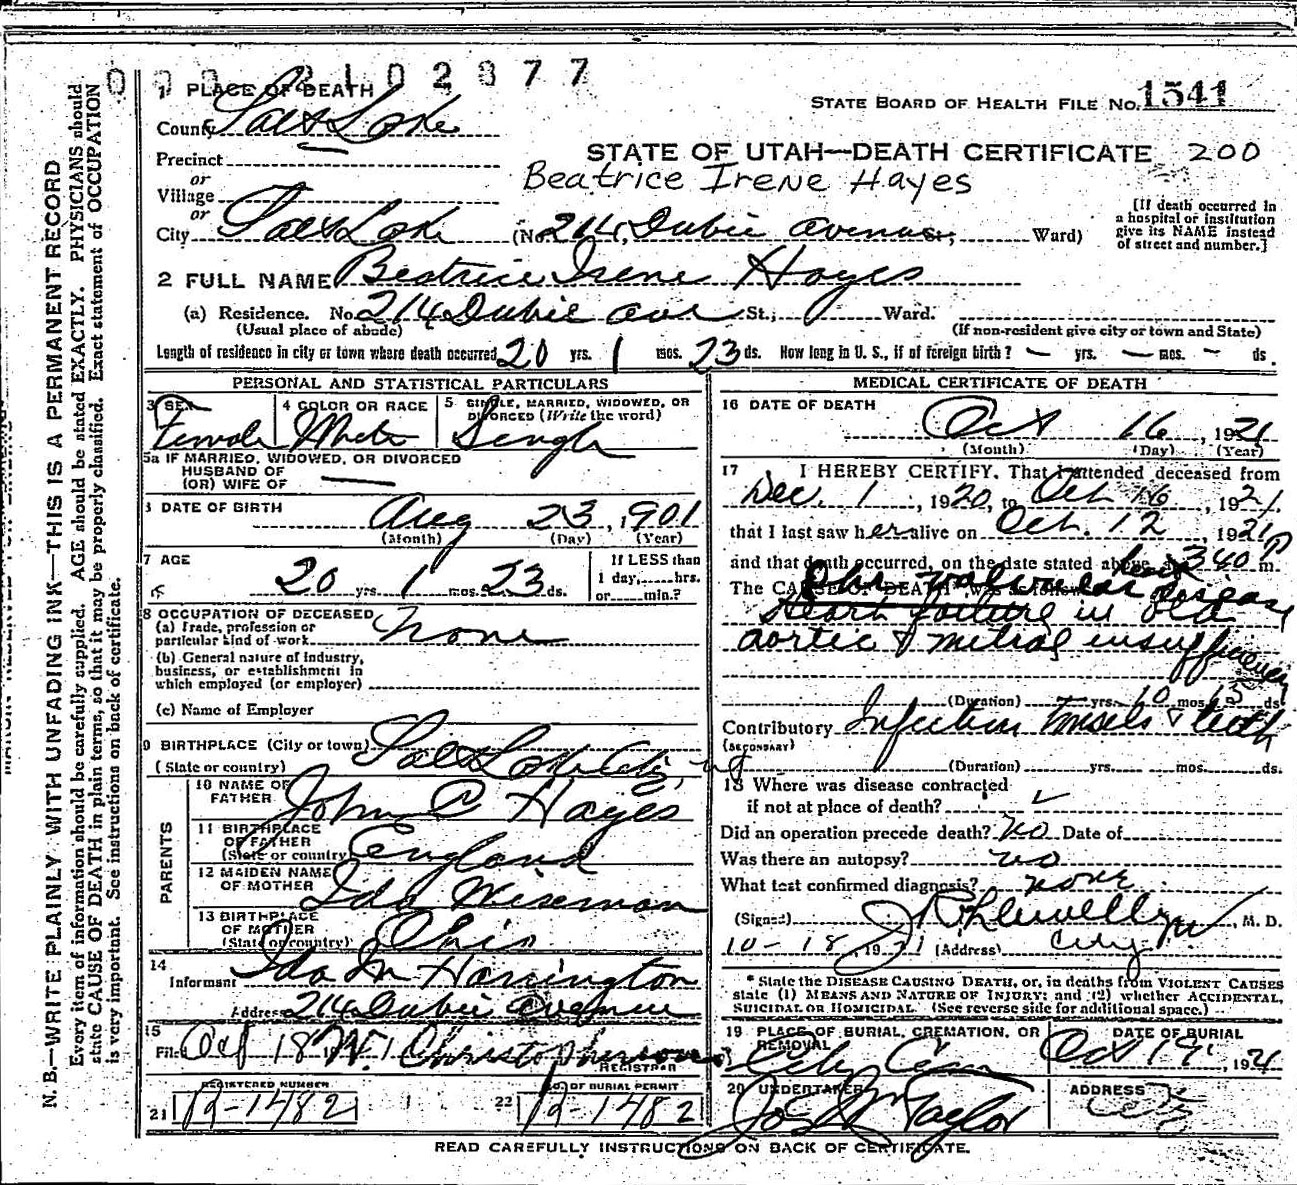 0 0 2102377
1 PLACE OF DEATH
STATE BOARD OF HEALTH FILE NO. 1541
County Salt Lake
STATE OF UTAH—DEATH CERTIFICATE 200
Precinct
Beatrice Irene Hayes
or
Village
or
City Salt Lake (No. 214, Dubie Avenue St.; Ward)
[If death occurred in
a hospital or institution
give its NAME instead
of street and number.]
2 FULL NAME Beatrice Irene Hayes
(a) Residence. No. 214 Dubie Ave St.; Ward.
(Usual place of abode) (If non-resident give city or town and State)
Length of residence in city or town where death occurred 20 yrs. 1 mos. 23 ds. How long in U. S., if of foreign birth? — yrs. — mos. — ds.
PERSONAL AND STATISTICAL PARTICULARS
3 SEX
Female
4 COLOR OR RACE
White
5 SINGLE, MARRIED, WIDOWED, OR
DIVORCED (Write the word)
Single
5a IF MARRIED, WIDOWED, OR DIVORCED
HUSBAND OF
(OR) WIFE OF —
6 DATE OF BIRTH
Aug 23, 1901
(Month) (Day) (Year)
7 AGE
20 yrs. 1 mos. 23 ds.
If LESS than
1 day,......hrs.
or......min.?
8 OCCUPATION OF DECEASED
(a) Trade, profession or
particular kind of work None
(b) General nature of industry,
business, or establishment in
which employed (or employer)
(c) Name of Employer
9 BIRTHPLACE (City or town)
(State or country) Salt Lake City,
PARENTS
10 NAME OF
FATHER John C Hayes
11 BIRTHPLACE
OF FATHER
(State or country) England
12 MAIDEN NAME
OF MOTHER Ida Wiseman
13 BIRTHPLACE
OF MOTHER
(State or country) Ohio
14
Informant Ida M Harrington
Address 214 Dubie Avenue
15
Filed Oct 18
REGISTRAR
REGISTERED NUMBER
21 R-1482
NO. OF BURIAL PERMIT
22 R-1482
MEDICAL CERTIFICATE OF DEATH
16 DATE OF DEATH
Oct 16, 1921
(Month) (Day) (Year)
17 I HEREBY CERTIFY, That I attended deceased from
Dec. 1, 1920, to Oct 16, 1921,
that I last saw her alive on Oct. 12 1921
and that death occurred, on the date stated above, at 340 P m.
The CAUSE OF DEATH was as follows:
Chr valvular heart disease
Heart failure in old
aortic & mitral insufficiency
(Duration) yrs. 10 mos. 15 ds.
Contributory Infection tonsils & teeth
(SECONDARY)
(Duration) yrs. mos. ds.
18 Where was disease contracted
if not at place of death?
Did an operation precede death? No Date of
Was there an autopsy? no
What test confirmed diagnosis? none
(Signed) J R Llewellyn, M. D.
10-18, 1921 (Address) City
* State the DISEASE CAUSING DEATH, or, in deaths from VIOLENT CAUSES
state (1) MEANS AND NATURE OF INJURY; and (2) whether ACCIDENTAL,
SUICIDAL OR HOMICIDAL (See reverse side for additional space.)
19 PLACE OF BURIAL, CREMATION, OR
REMOVAL
City Cem
DATE OF BURIAL
Oct 19, 1921
20 UNDERTAKER
Jos Wm Taylor
ADDRESS
City
READ CAREFULLY INSTRUCTIONS ON BACK OF CERTIFICATE.
N. B.—WRITE PLAINLY WITH UNFADING INK—THIS IS A PERMANENT RECORD
Every item of information should be carefully supplied. AGE should be stated EXACTLY. PHYSICIANS should
state CAUSE OF DEATH in plain terms, so that it may be properly classified. Exact statement of OCCUPATION
is very important. See instructions on back of certificate.